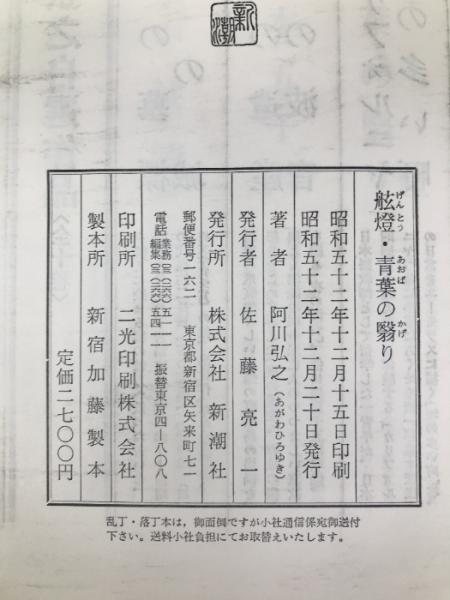 新潮
舷燈・青葉の翳り
げんとう
あおば
かげ
昭和五十二年十二月十五日印刷
昭和五十二年十二月二十日発行
著者 阿川弘之（あがわひろゆき）
発行者 佐藤亮一
発行所 株式会社 新潮社
郵便番号一六二 東京都新宿区矢来町七一
電話 業務(〇三)(二六六)五一一一
編集(〇三)(二六六)五四一一 振替東京四―八〇八
印刷所 二光印刷株式会社
製本所 新宿加藤製本
定価二七〇〇円
乱丁・落丁本は，御面倒ですが小社通信係宛御送付
下さい。送料小社負担にてお取替えいたします。